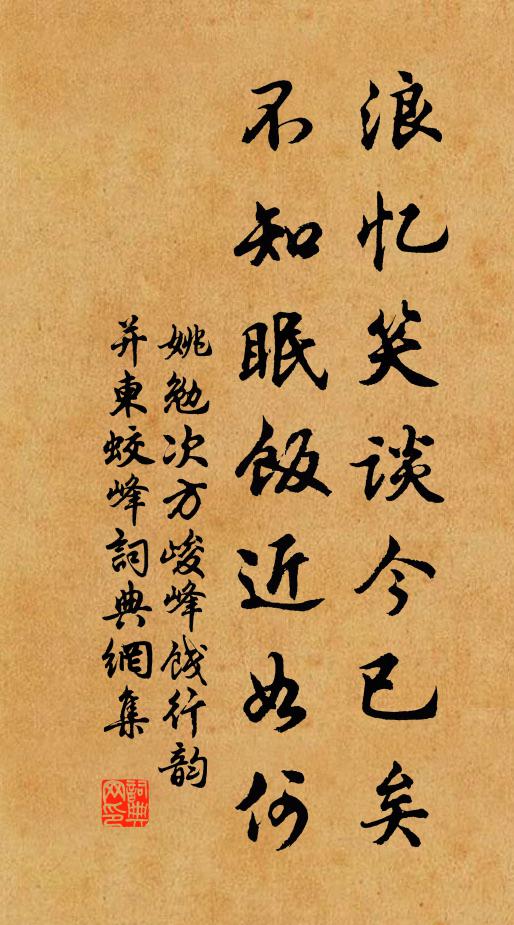 浪忆笑谈今已矣
不知眠饭近如何
姚勉次方峻峰饯行韵
并東蛟峰詞典網集
詞典
网印